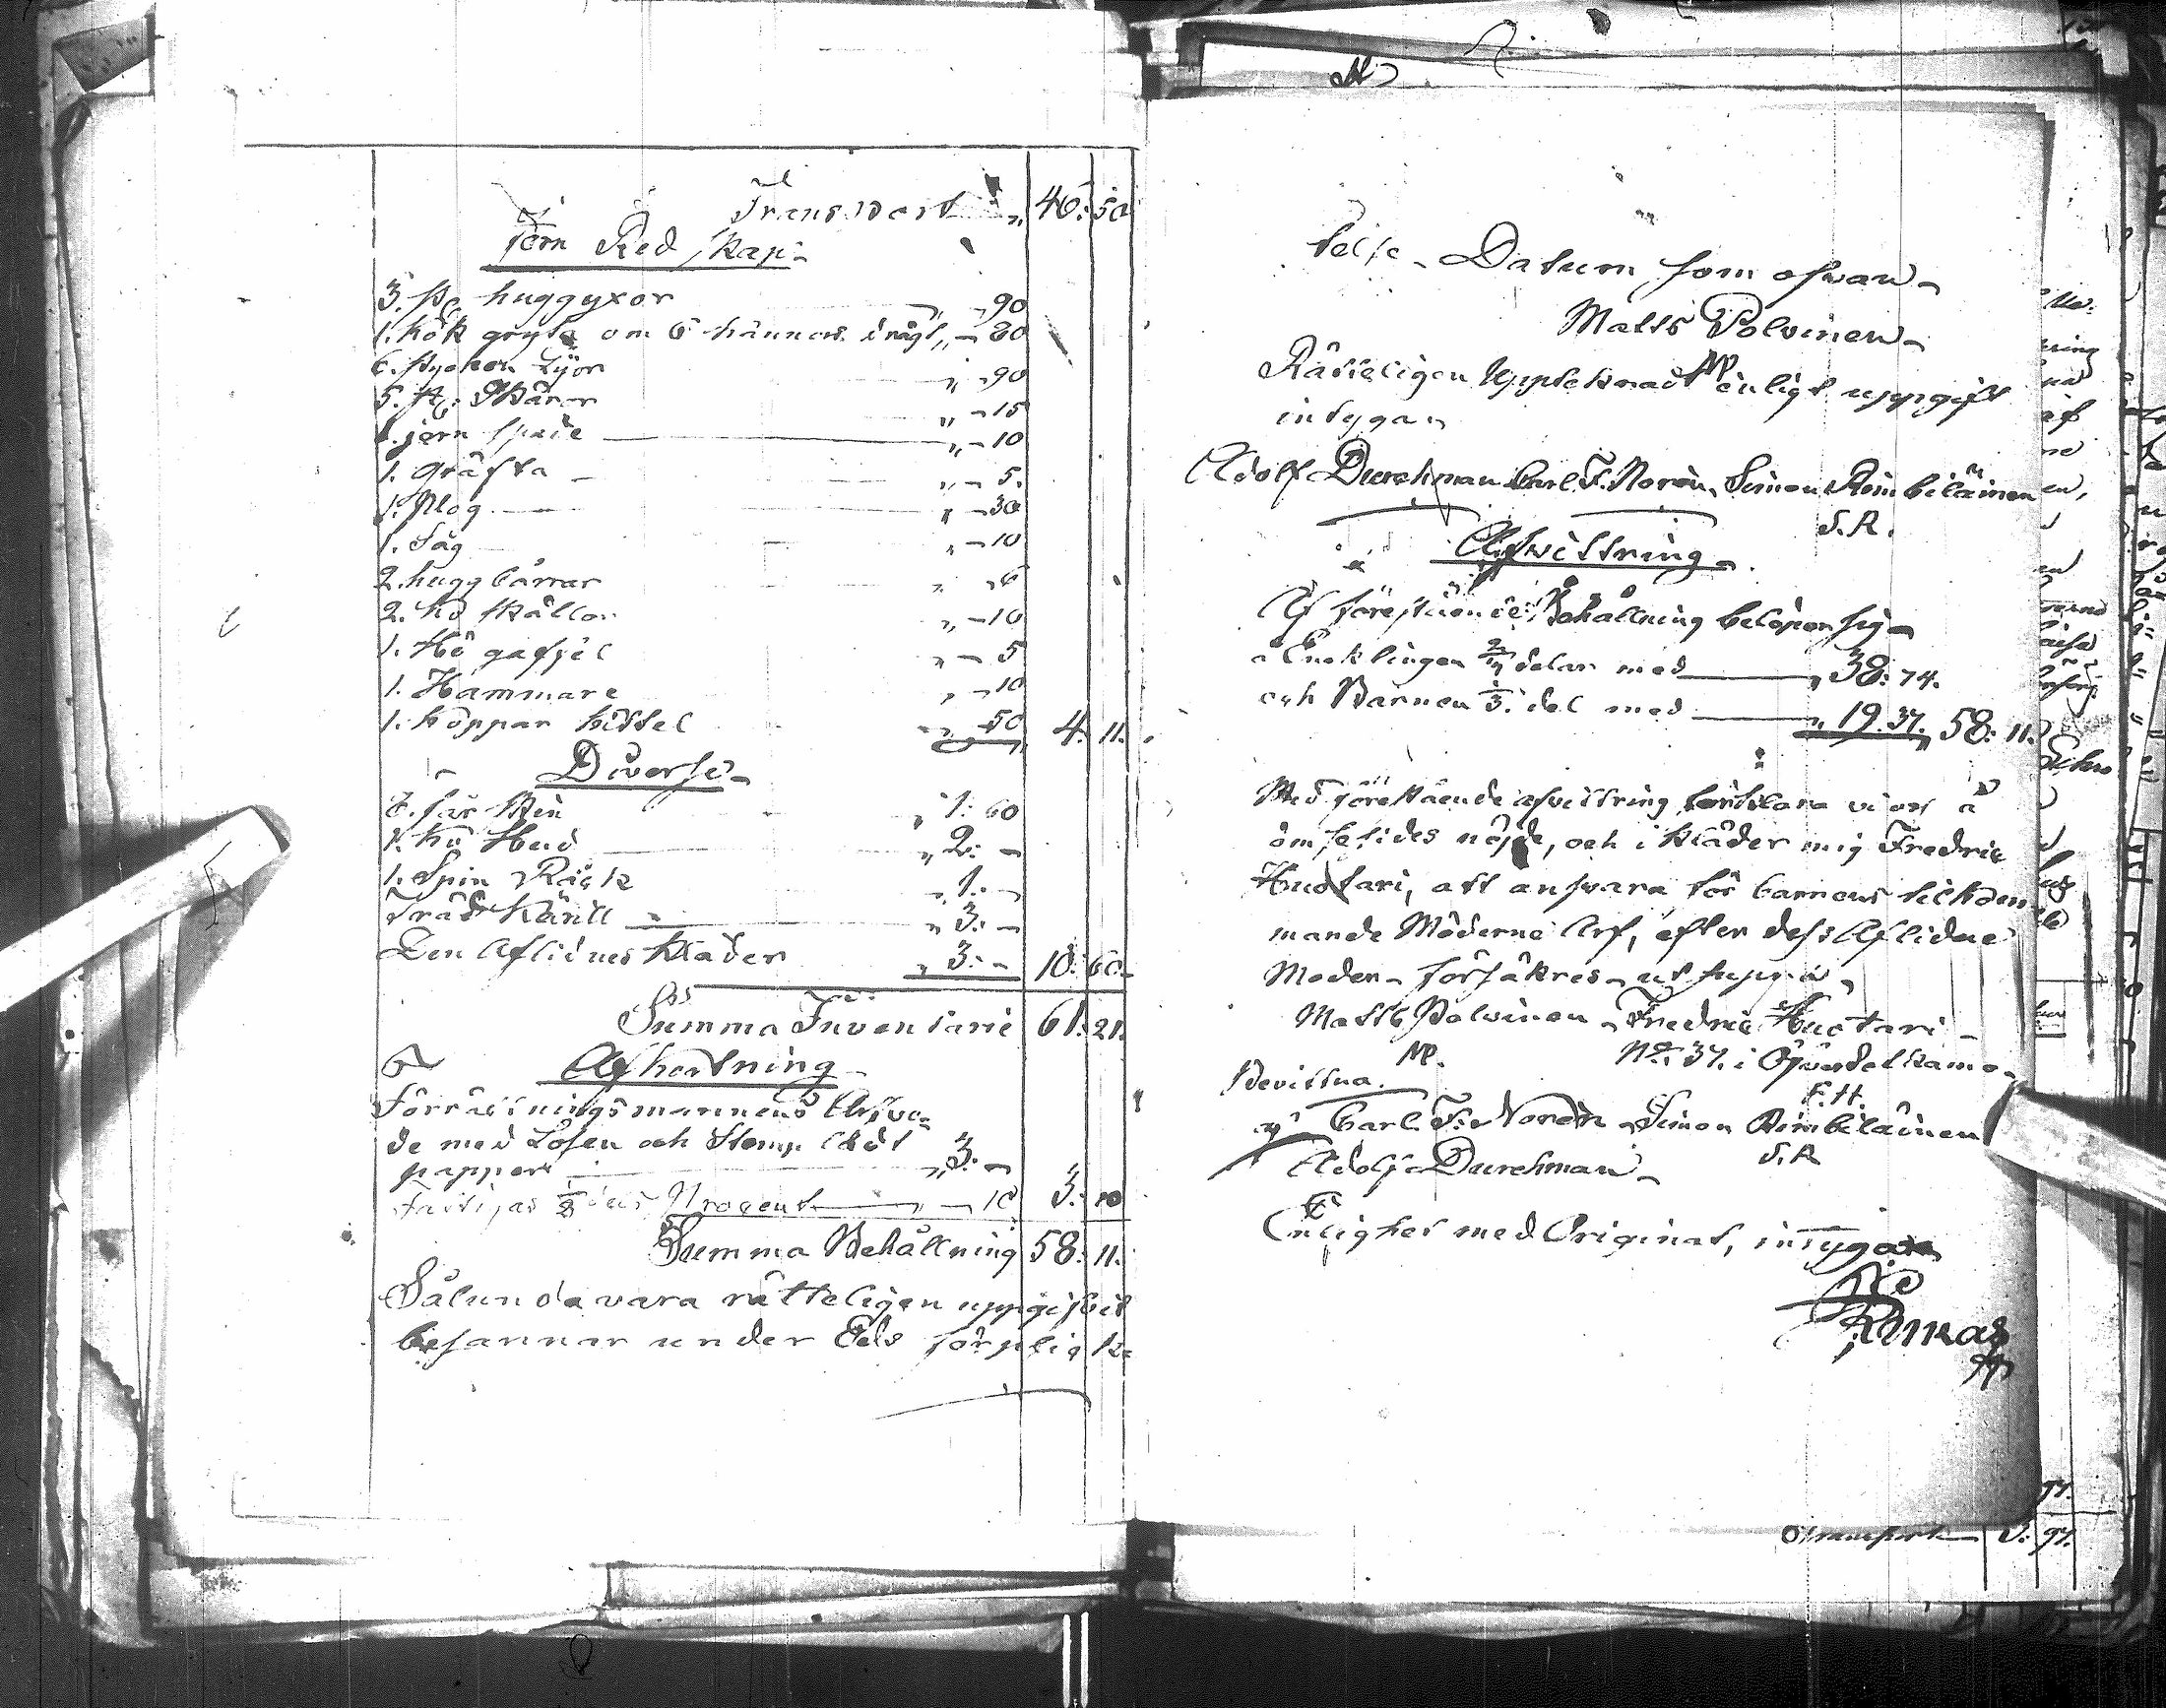 Transport „ 46: 50
Jern Redskap
3. st. huggyxor „ - 90
1. kok gryta om 6 kannors drägt „ - 80
6. stycken Lijor „ - 90
5. st. Skäror „ - 15
1. jern spade „ - 10
1. gräfta „ - 5.
1. Plog „ - 30
1. Såg „ - 10
2. hugg bårrar „ - 6
2. ko skällor „ - 10
1. Hö gaffel „ - 5
1. Hammare „ - 10
1. koppar kittel „ - 50 4: 11.
Diverse
8. får skin „ 1: 60
1. ko Hud „ 2: -
1. Spin Råck „ 1: -
Träd Käril „ 3: -
Den Aflidnes kläder „ 3: - 10: 60
Summa Inventarie 61: 21.
Afkortning
Förrättningsmannens Arfvo-
de med Lösen och Stemp lädt
papper „ 3: -
Fattigas 1/8 dels Procent „ - 10 3: 10
Summa Behållning 58: 11.
Sålunda vara rätteligen uppgifvit
besannar under Eds förplig k-
telse Datum som ofvan
Matts Polvinen
MP
Rätteligen Upptecknadt enligt uppgift
intygar
Adolf Durchman Carl F. Norèn, Simon Rimbiläinen
S. R.
Afwittring
Af förestående Behållning belöper sig
å Encklingen 2/3 delar med „ 38: 74.
och Barnen 1/3 del med „ 19. 37. 58: 11.
Med förestående afvittring förklara vi oss å
ömse sides nöjde, och i kläder mig Fredric
Huotari, att ansvara för barnens tillkom
mande Möderne Arf, efter dess Aflidne
Moder försäkres ut supra
Matts Polvinen Fredric Huotari
MP. No. 37. i
F. H.
Bevittna.
Carl. F. Norèn Simon Rimbiläinen
S. R
Adolf Durchman
Enlighet med Original, intygar
Transport 3: 97.